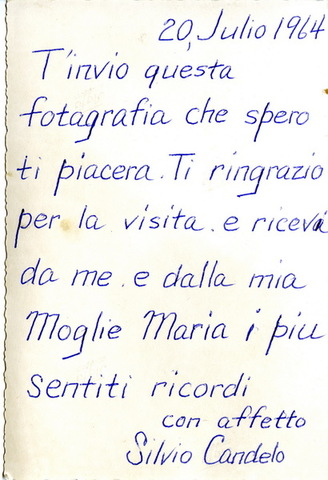 20, Julio 1964
T'invio questa
fotagrafia che spero
ti piacera. Ti ringrazio
per la visita. e ricevi
da me. e dalla mia
Moglie Maria i piu
sentiti ricordi
con affetto
Silvio Candelo